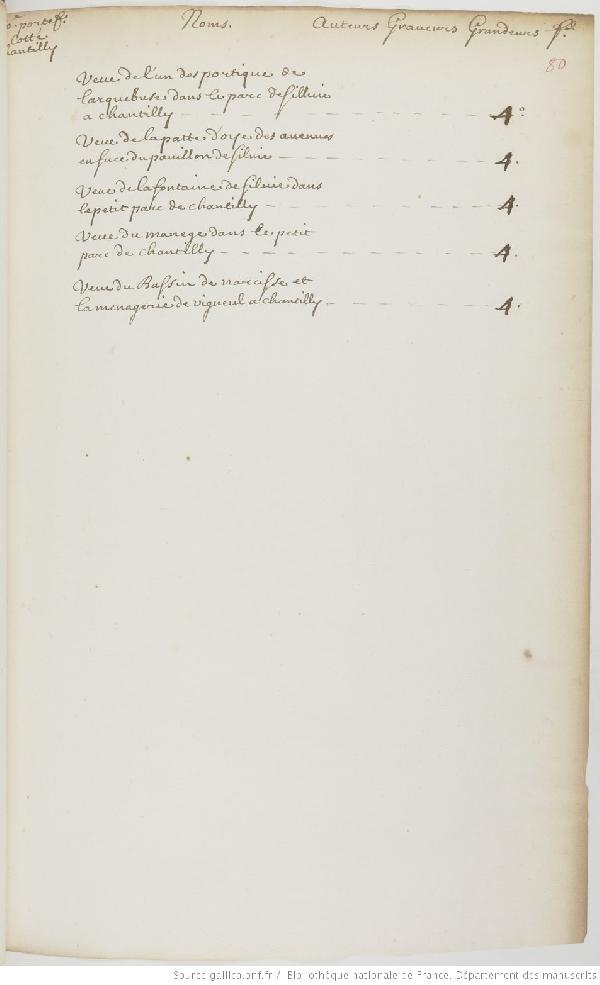 portef.
Noms. Auteurs Graveurs Grandeurs f.
Cotté
hantilly
80
Veue de l'un des portique de
larquebuse dans le parc de sillvie
a chantilly 4°
Veue de la patte d'oye des avenues
en face du pavillon de silvie 4.
Veue de la fontaine de silvie dans
le petit parc de chantilly 4.
Veue du manege dans le petit
parc de chantilly 4.
Veue du Bassin de narcisse et
la menagerie de vigneul a chantilly 4.
Source gallica.bnf.fr / Bibliothèque nationale de France. Département des manuscrits